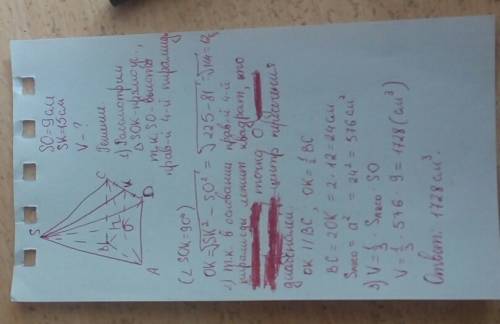 SO=9см
SK=15см
V-?
Решение
1) Рассмотрим
Δ SOK-прямоуг.,
т.к. SO-высота
прав-й 4-й пирамиды
S
C
K
D
A
(∠SOK=90°)
OK=√SK²-SO² = √225-81=√144=12
2) т.к. в основании прав-й 4-й
пирамиды лежит квадрат, то
точка O
центр пересечения
диагоналей
OK || BC, OK=½BC
BC=2OK=2·12=24см
Sпкво = a² = 24² = 576см²
3) V=⅓ Sпкво SO
V=⅓·576·9=1728(см³)
Ответ: 1728см³.